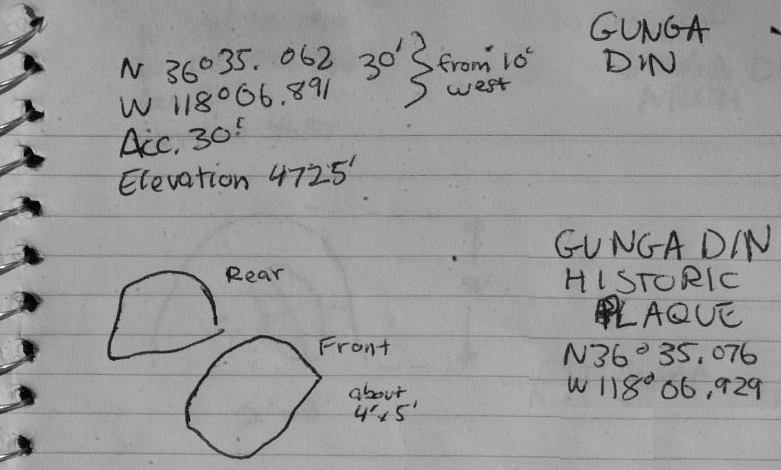 GUNGA
DIN
N 36°35.062 30' } from 10'
W 118°06.891 west
Acc. 30'
Elevation 4725'
GUNGA DIN
HISTORIC
PLAQUE
N36°35.076
W118°06.929
Rear
Front
about
4'x5'